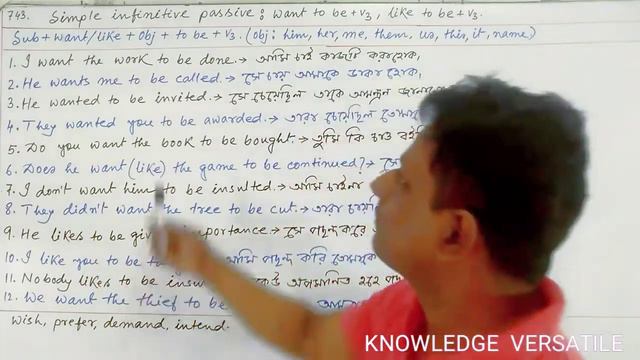 743. Simple infinitive passive: want to be + v3, like to be + v3.
Sub + want/like + obj + to be + v3. (obj: him, her, me, them, us, this, it, name)
1. I want the work to be done. → আমি চাই কাজটি করা হোক,
2. He wants me to be called. → সে চায় আমাকে ডাকা হোক,
3. He wanted to be invited. → সে চেয়েছিল তাকে আমন্ত্রন
4. They wanted you to be awarded. → তারা চেয়েছিল
5. Do you want the book to be bought. → তুমি কি চাও
6. Does he want (like) the game to be continued? → সে
7. I don't want him to be insulted. → আমি চাইনা
8. They didn't want the tree to be cut. → তারা
9. He likes to be importance → সে পছন্দ করে
10. I like you to be আমি পছন্দ করি তোমাকে
11. Nobody likes to be কেউ অপমানিত হতে
12. We want the thief to be
wish, prefer, demand, intend.
KNOWLEDGE VERSATILE